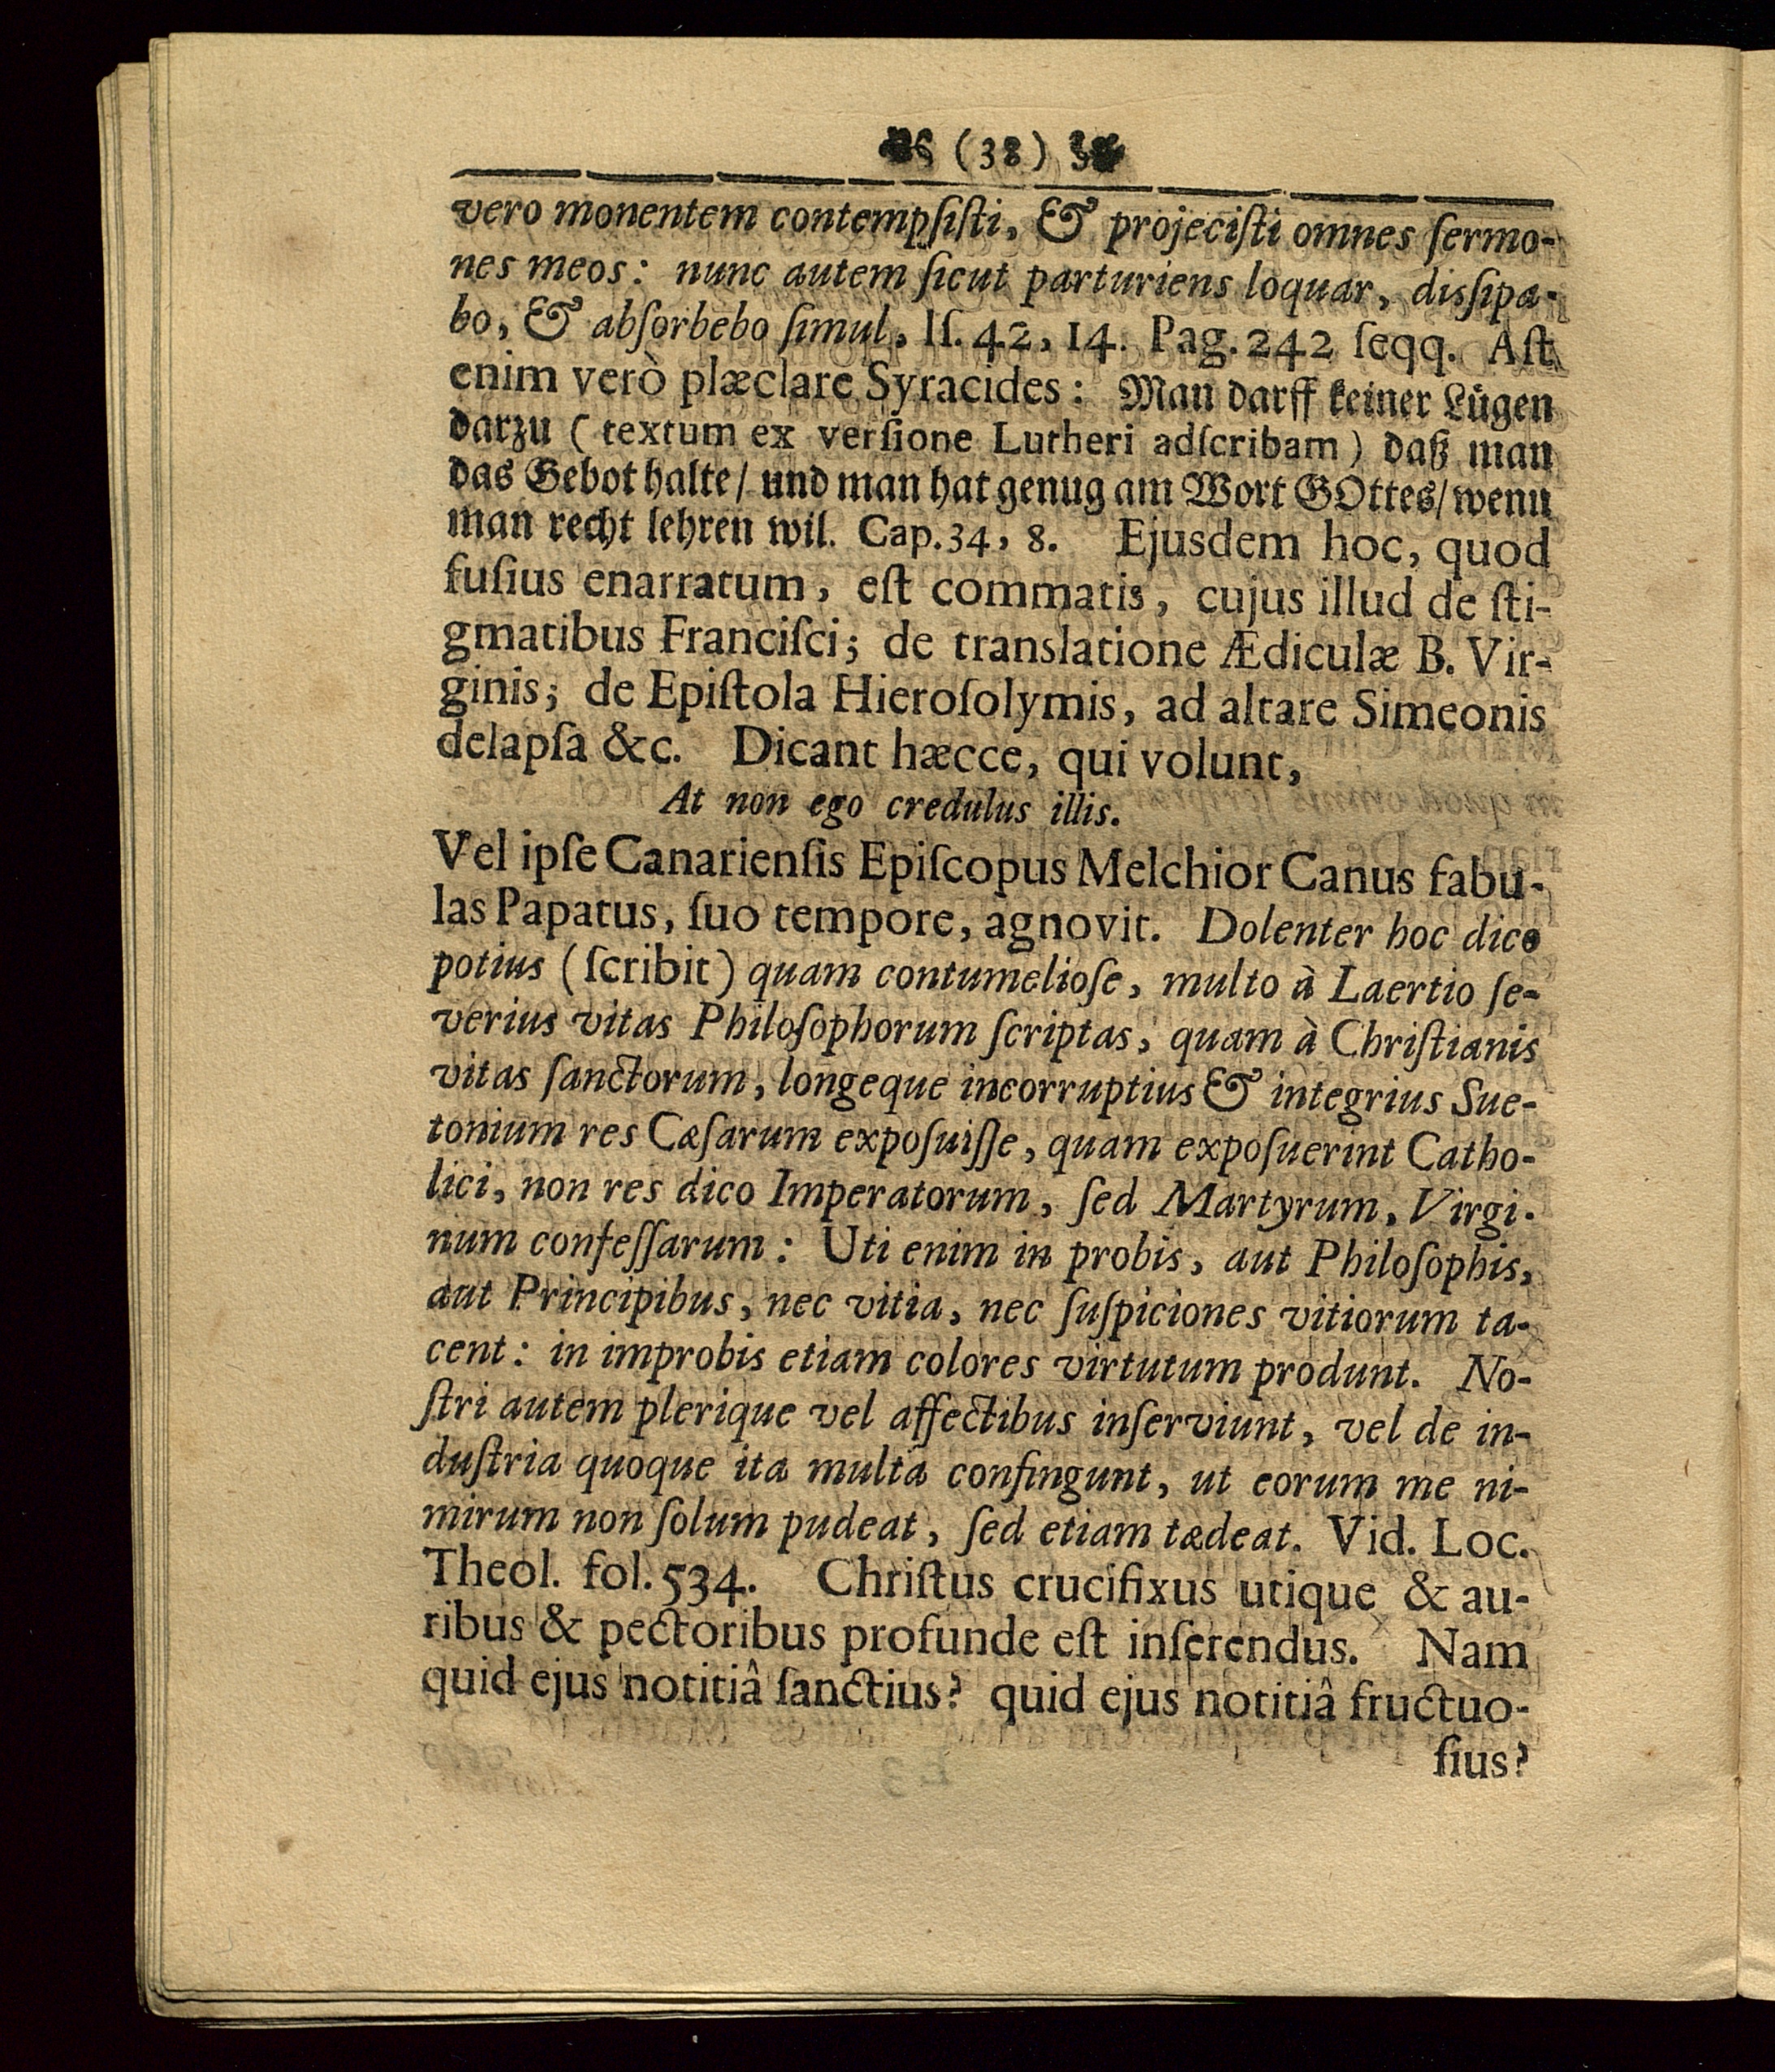 (38)
vero monentem contempſiſti, & projeciſti omnes ſermo-
nes meos: nunc autem ſicut parturiens loquar, disſipa-
bo, & abſorbebo ſimul, Iſ. 42, 14. Pag. 242 ſeqq. Aſt
enim verò plæclare Syracides: Man darff keiner Lügen
darzu (textum ex verſione Lutheri adſcribam) daß man
das Gebot halte/ und man hat genug am Wort GOttes/ wenn
man recht lehren wil. Cap. 34, 8. Ejusdem hoc, quod
fuſius enarratum, eſt commatis, cujus illud de ſti-
gmatibus Franciſci; de translatione Ædiculæ B. Vir-
ginis; de Epiſtola Hieroſolymis, ad altare Simeonis
delapſa &c. Dicant hæcce, qui volunt,
At non ego credulus illis.
Vel ipſe Canarienſis Epiſcopus Melchior Canus fabu-
las Papatus, ſuo tempore, agnovit. Dolenter hoc dico
potius (ſcribit) quam contumelioſe, multo à Laertio ſe-
verius vitas Philoſophorum ſcriptas, quam à Chriſtianis
vitas ſanctorum, longeque incorruptius & integrius Sue-
tonium res Cæſarum expoſuiſſe, quam expoſuerint Catho-
lici, non res dico Imperatorum, ſed Martyrum, Virgi-
num confeſſarum: Uti enim in probis, aut Philoſophis,
aut Principibus, nec vitia, nec ſuſpiciones vitiorum ta-
cent: in improbis etiam colores virtutum produnt. No-
ſtri autem plerique vel affectibus inſerviunt, vel de in-
duſtria quoque ita multa confingunt, ut eorum me ni-
mirum non ſolum pudeat, ſed etiam tædeat. Vid. Loc.
Theol. fol. 534. Chriſtus crucifixus utique & au-
ribus & pectoribus profunde eſt inſerendus. Nam
quid ejus notitiâ ſanctius? quid ejus notitiâ fructuo-
ſius?